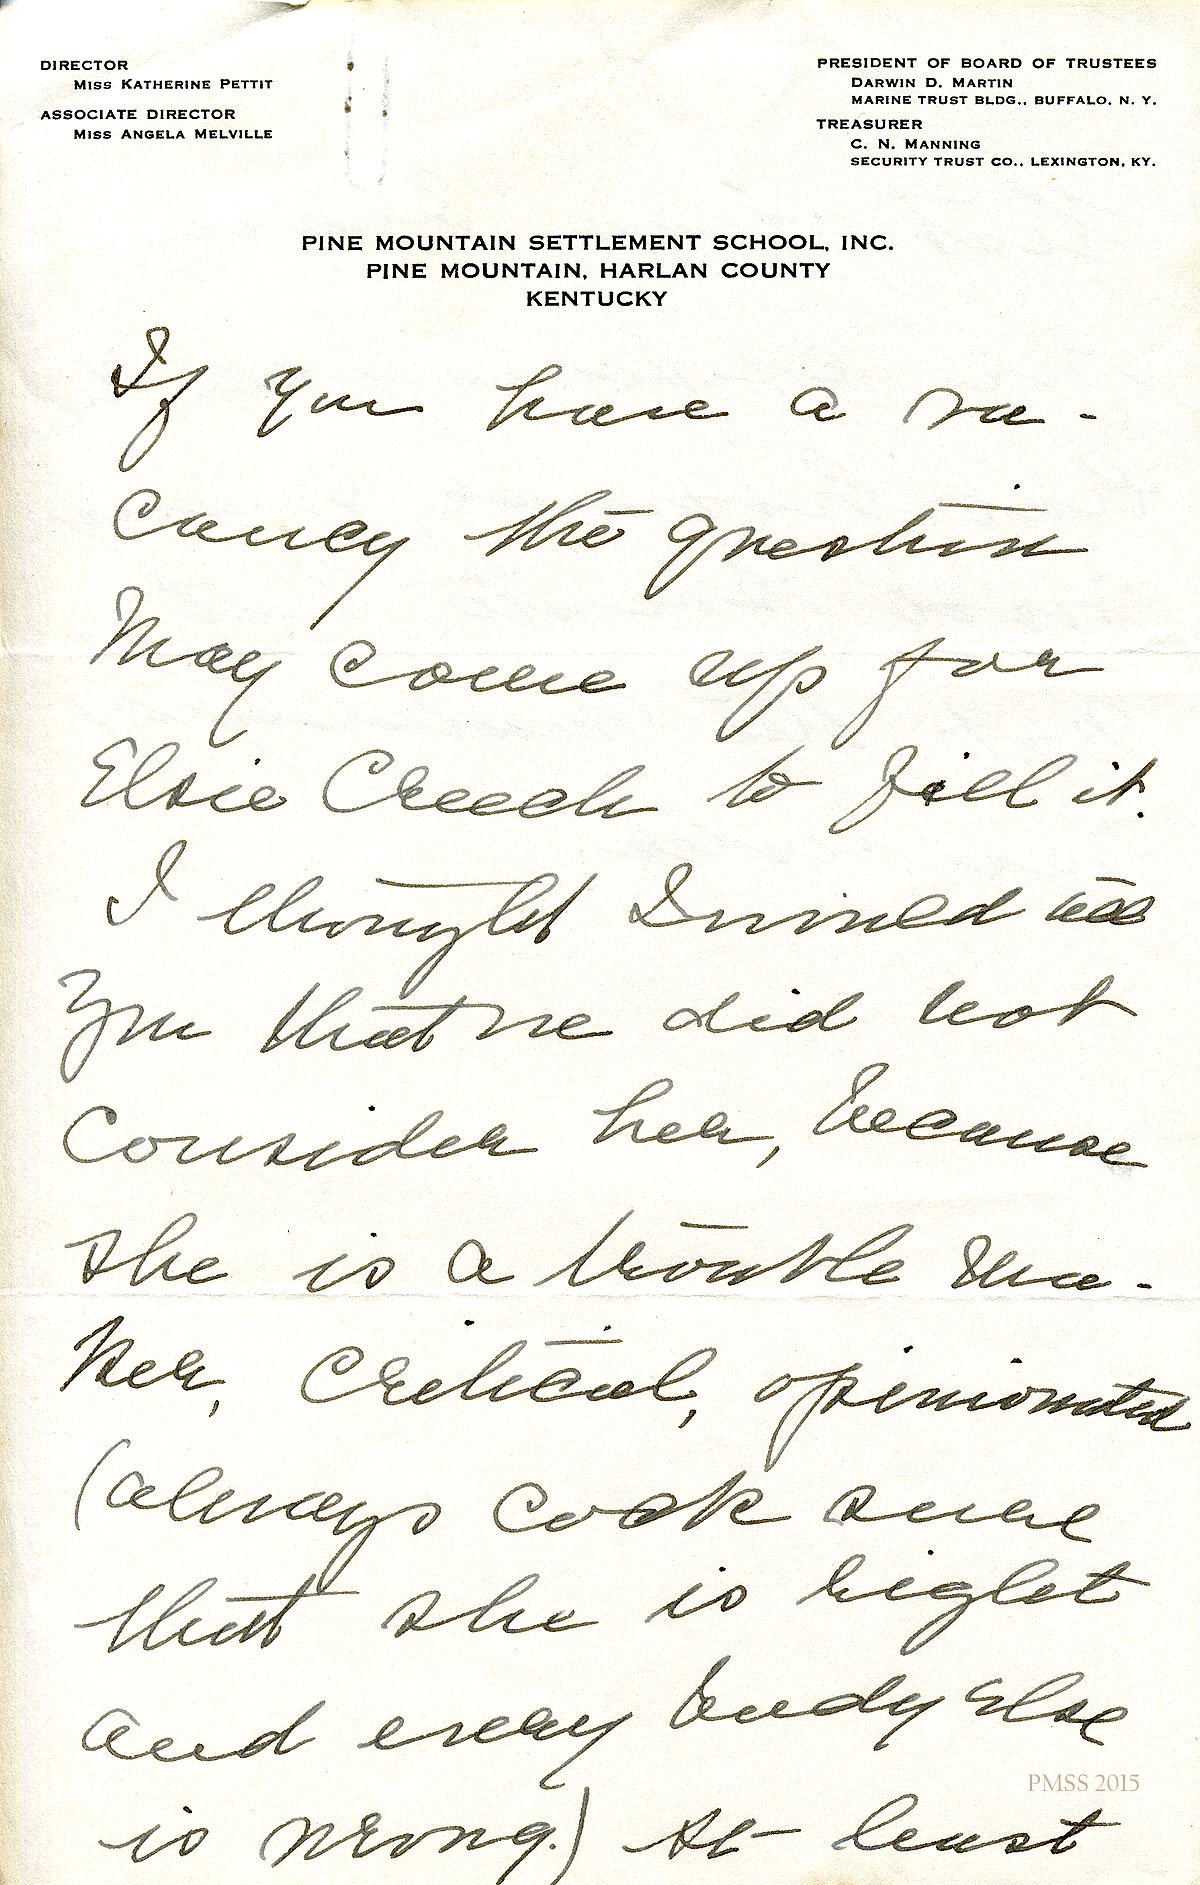 DIRECTOR
MISS KATHERINE PETTIT
ASSOCIATE DIRECTOR
MISS ANGELA MELVILLE
PRESIDENT OF BOARD OF TRUSTEES
DARWIN D. MARTIN
MARINE TRUST BLDG., BUFFALO, N. Y.
TREASURER
C. N. MANNING
SECURITY TRUST CO., LEXINGTON, KY.
PINE MOUNTAIN SETTLEMENT SCHOOL, INC.
PINE MOUNTAIN, HARLAN COUNTY
KENTUCKY
If you have a va-
cancy the question
May come up for
Elsie Creech to fill it.
I thought I wived tell
you that we did not
Consider her, because
she is a trouble ma-
ker, critical, opinionated
(always cock sure
that she is right
and every body Else
is wrong.) At least
PMSS 2015